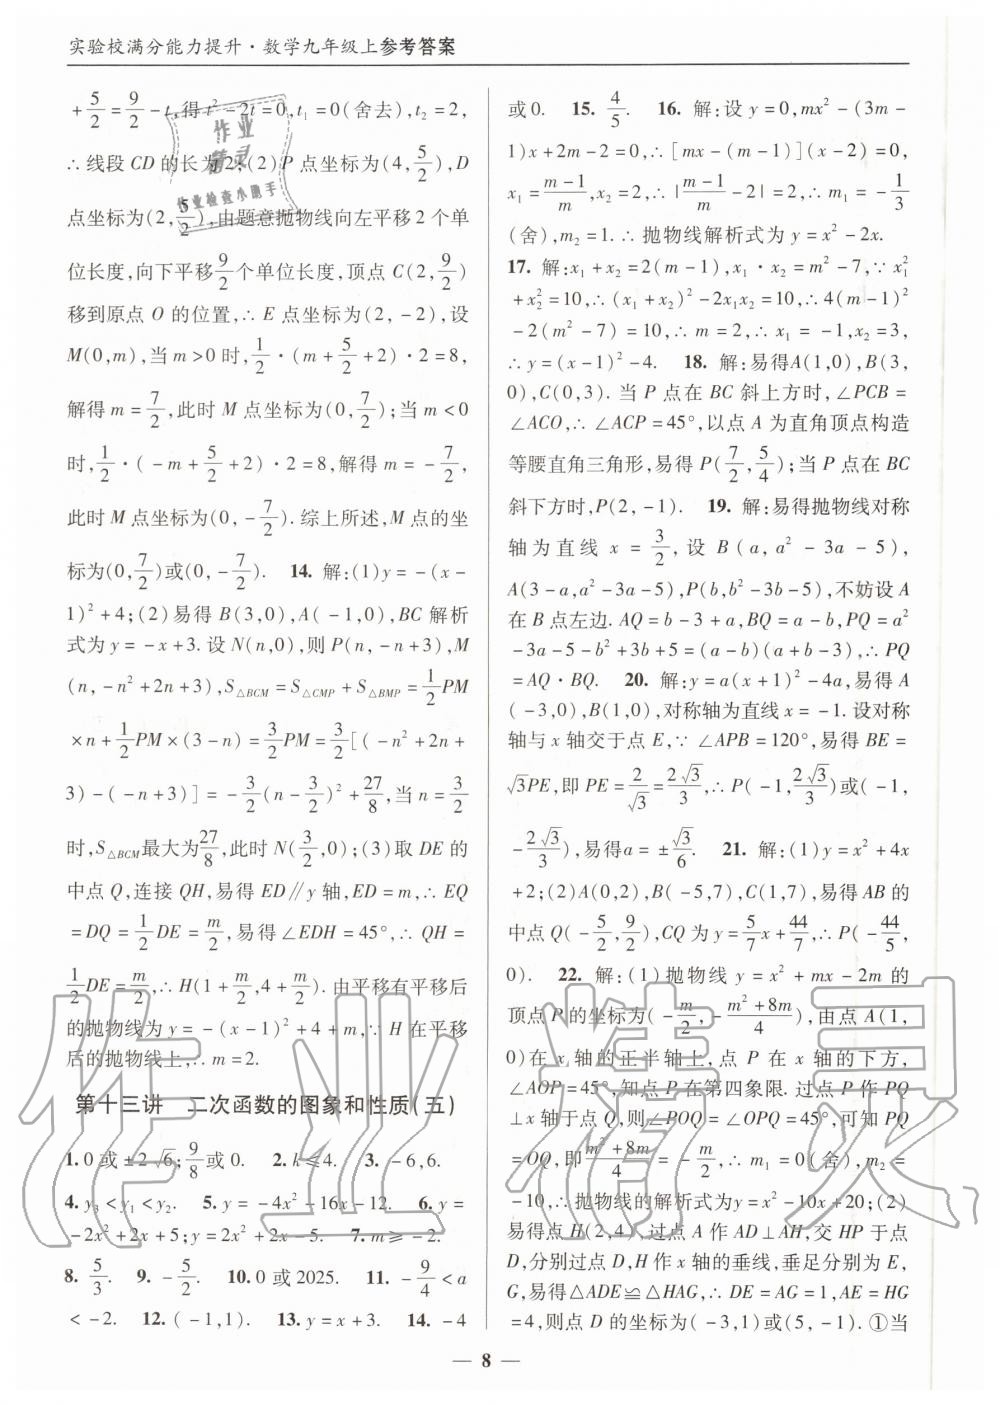 实验校满分能力提升·数学九年级上参考答案
+5/2=9/2-t,得t²-2t=0,t₁=0(舍去),t₂=2,
∴线段CD的长为2;(2)P点坐标为(4,5/2),D
点坐标为(2,5/2),由题意抛物线向左平移2个单
位长度,向下平移9/2个单位长度,顶点C(2,9/2)
移到原点O的位置,∴E点坐标为(2,-2),设
M(0,m),当m>0时,1/2·(m+5/2+2)·2=8,
解得m=7/2,此时M点坐标为(0,7/2);当m<0
时,1/2·(-m+5/2+2)·2=8,解得m=-7/2,
此时M点坐标为(0,-7/2).综上所述,M点的坐
标为(0,7/2)或(0,-7/2). 14. 解:(1)y=-(x-
1)²+4;(2)易得B(3,0),A(-1,0),BC解析
式为y=-x+3.设N(n,0),则P(n,-n+3),M
(n,-n²+2n+3),S△BCM=S△CMP+S△BMP=1/2PM
×n+1/2PM×(3-n)=3/2PM=3/2[(-n²+2n+
3)-(-n+3)]=-3/2(n-3/2)²+27/8,当n=3/2
时,S△BCM最大为27/8,此时N(3/2,0);(3)取DE的
中点Q,连接QH,易得ED∥y轴,ED=m,∴EQ
=DQ=1/2DE=m/2,易得∠EDH=45°,∴QH=
1/2DE=m/2,∴H(1+m/2,4+m/2).由平移有平移后
的抛物线为y=-(x-1)²+4+m,∵H在平移
后的抛物线上,∴m=2.
第十三讲 二次函数的图象和性质(五)
1.0或±2√6;9/8或0. 2.k≤4. 3.-6,6.
4.y₃<y₁<y₂. 5.y=-4x²-16x-12. 6.y=
-2x²+2x+5;y=2x²+2x-5. 7.m≥-2.
8.5/3. 9.-5/2. 10.0或2025. 11.-9/4<a
<-2. 12.(-1,1). 13.y=x+3. 14.-4
或0. 15.4/5. 16. 解:设y=0,mx²-(3m-
1)x+2m-2=0,∴[mx-(m-1)](x-2)=0,
x₁=m-1/m,x₂=2,∴|m-1/m-2|=2,∴m₁=-1/3
(舍),m₂=1.∴抛物线解析式为y=x²-2x.
17. 解:x₁+x₂=2(m-1),x₁·x₂=m²-7,∵x₁²
+x₂²=10,∴(x₁+x₂)²-2x₁x₂=10,∴4(m-1)²
-2(m²-7)=10,∴m=2,∴x₁=-1,x₂=3,
∴y=(x-1)²-4. 18. 解:易得A(1,0),B(3,
0),C(0,3).当P点在BC斜上方时,∠PCB=
∠ACO,∴∠ACP=45°,以点A为直角顶点构造
等腰直角三角形,易得P(7/2,5/4);当P点在BC
斜下方时,P(2,-1). 19. 解:易得抛物线对称
轴为直线x=3/2,设B(a,a²-3a-5),
A(3-a,a²-3a-5),P(b,b²-3b-5),不妨设A
在B点左边.AQ=b-3+a,BQ=a-b,PQ=a²
-3a-5-b²+3b+5=(a-b)(a+b-3),∴PQ
=AQ·BQ. 20. 解:y=a(x+1)²-4a,易得A
(-3,0),B(1,0),对称轴为直线x=-1.设对称
轴与x轴交于点E,∵∠APB=120°,易得BE=
√3PE,即PE=2/√3=2√3/3,∴P(-1,2√3/3)或(-1,
-2√3/3),易得a=±√3/6. 21. 解:(1)y=x²+4x
+2;(2)A(0,2),B(-5,7),C(1,7),易得AB的
中点Q(-5/2,9/2),CQ为y=5/7x+44/7,∴P(-44/5,
0). 22. 解:(1)抛物线y=x²+mx-2m的
顶点P的坐标为(-m/2,-m²+8m/4),由点A(1,
0)在x轴的正半轴上,点P在x轴的下方,
∠AOP=45°,知点P在第四象限.过点P作PQ
⊥x轴于点Q,则∠POQ=∠OPQ=45°,可知PQ
=OQ,即m²+8m/4=-m/2,∴m₁=0(舍),m₂=
-10,∴抛物线的解析式为y=x²-10x+20;(2)
易得点H(2,4),过点A作AD⊥AH,交HP于点
D,分别过点D,H作x轴的垂线,垂足分别为E,
G,易得△ADE≌△HAG,∴DE=AG=1,AE=HG
=4,则点D的坐标为(-3,1)或(5,-1).①当
— 8 —
作业
精灵
作业检查小助手
作业精灵